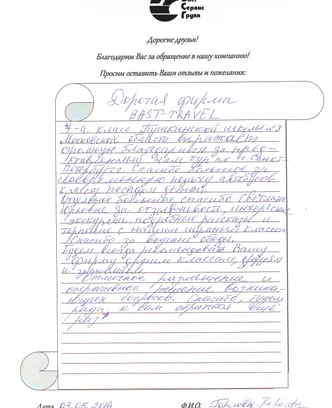 Сервис
Групп
Дорогие друзья!
Благодарим Вас за обращение в нашу компанию!
Просим оставить Ваши отзывы и пожелания:
Дорогая фирма
BAST-TRAVEL
класс Пушкинской школы
Московской области выражает
огромную благодарность за
нам тур по г. Санкт-
Петербург. Спасибо большое за
своевременную подачу автобусов
к месту посадки детей.
Отдельное большое спасибо Светлане
Юрьевне за отзывчивость, интересные
экскурсии, подробные рассказы,
терпение с нашим шумным классом
Спасибо за вкусные обеды.
Будем всегда рекомендовать Вашу
фирму другим классам, друзьям
и знакомым.
Отличное размещение и
оперативное решение возника-
ющих вопросов. Спасибо, будем
рады к вам обратиться ещё
раз
Дата 07.05.2014 Ф.И.О.